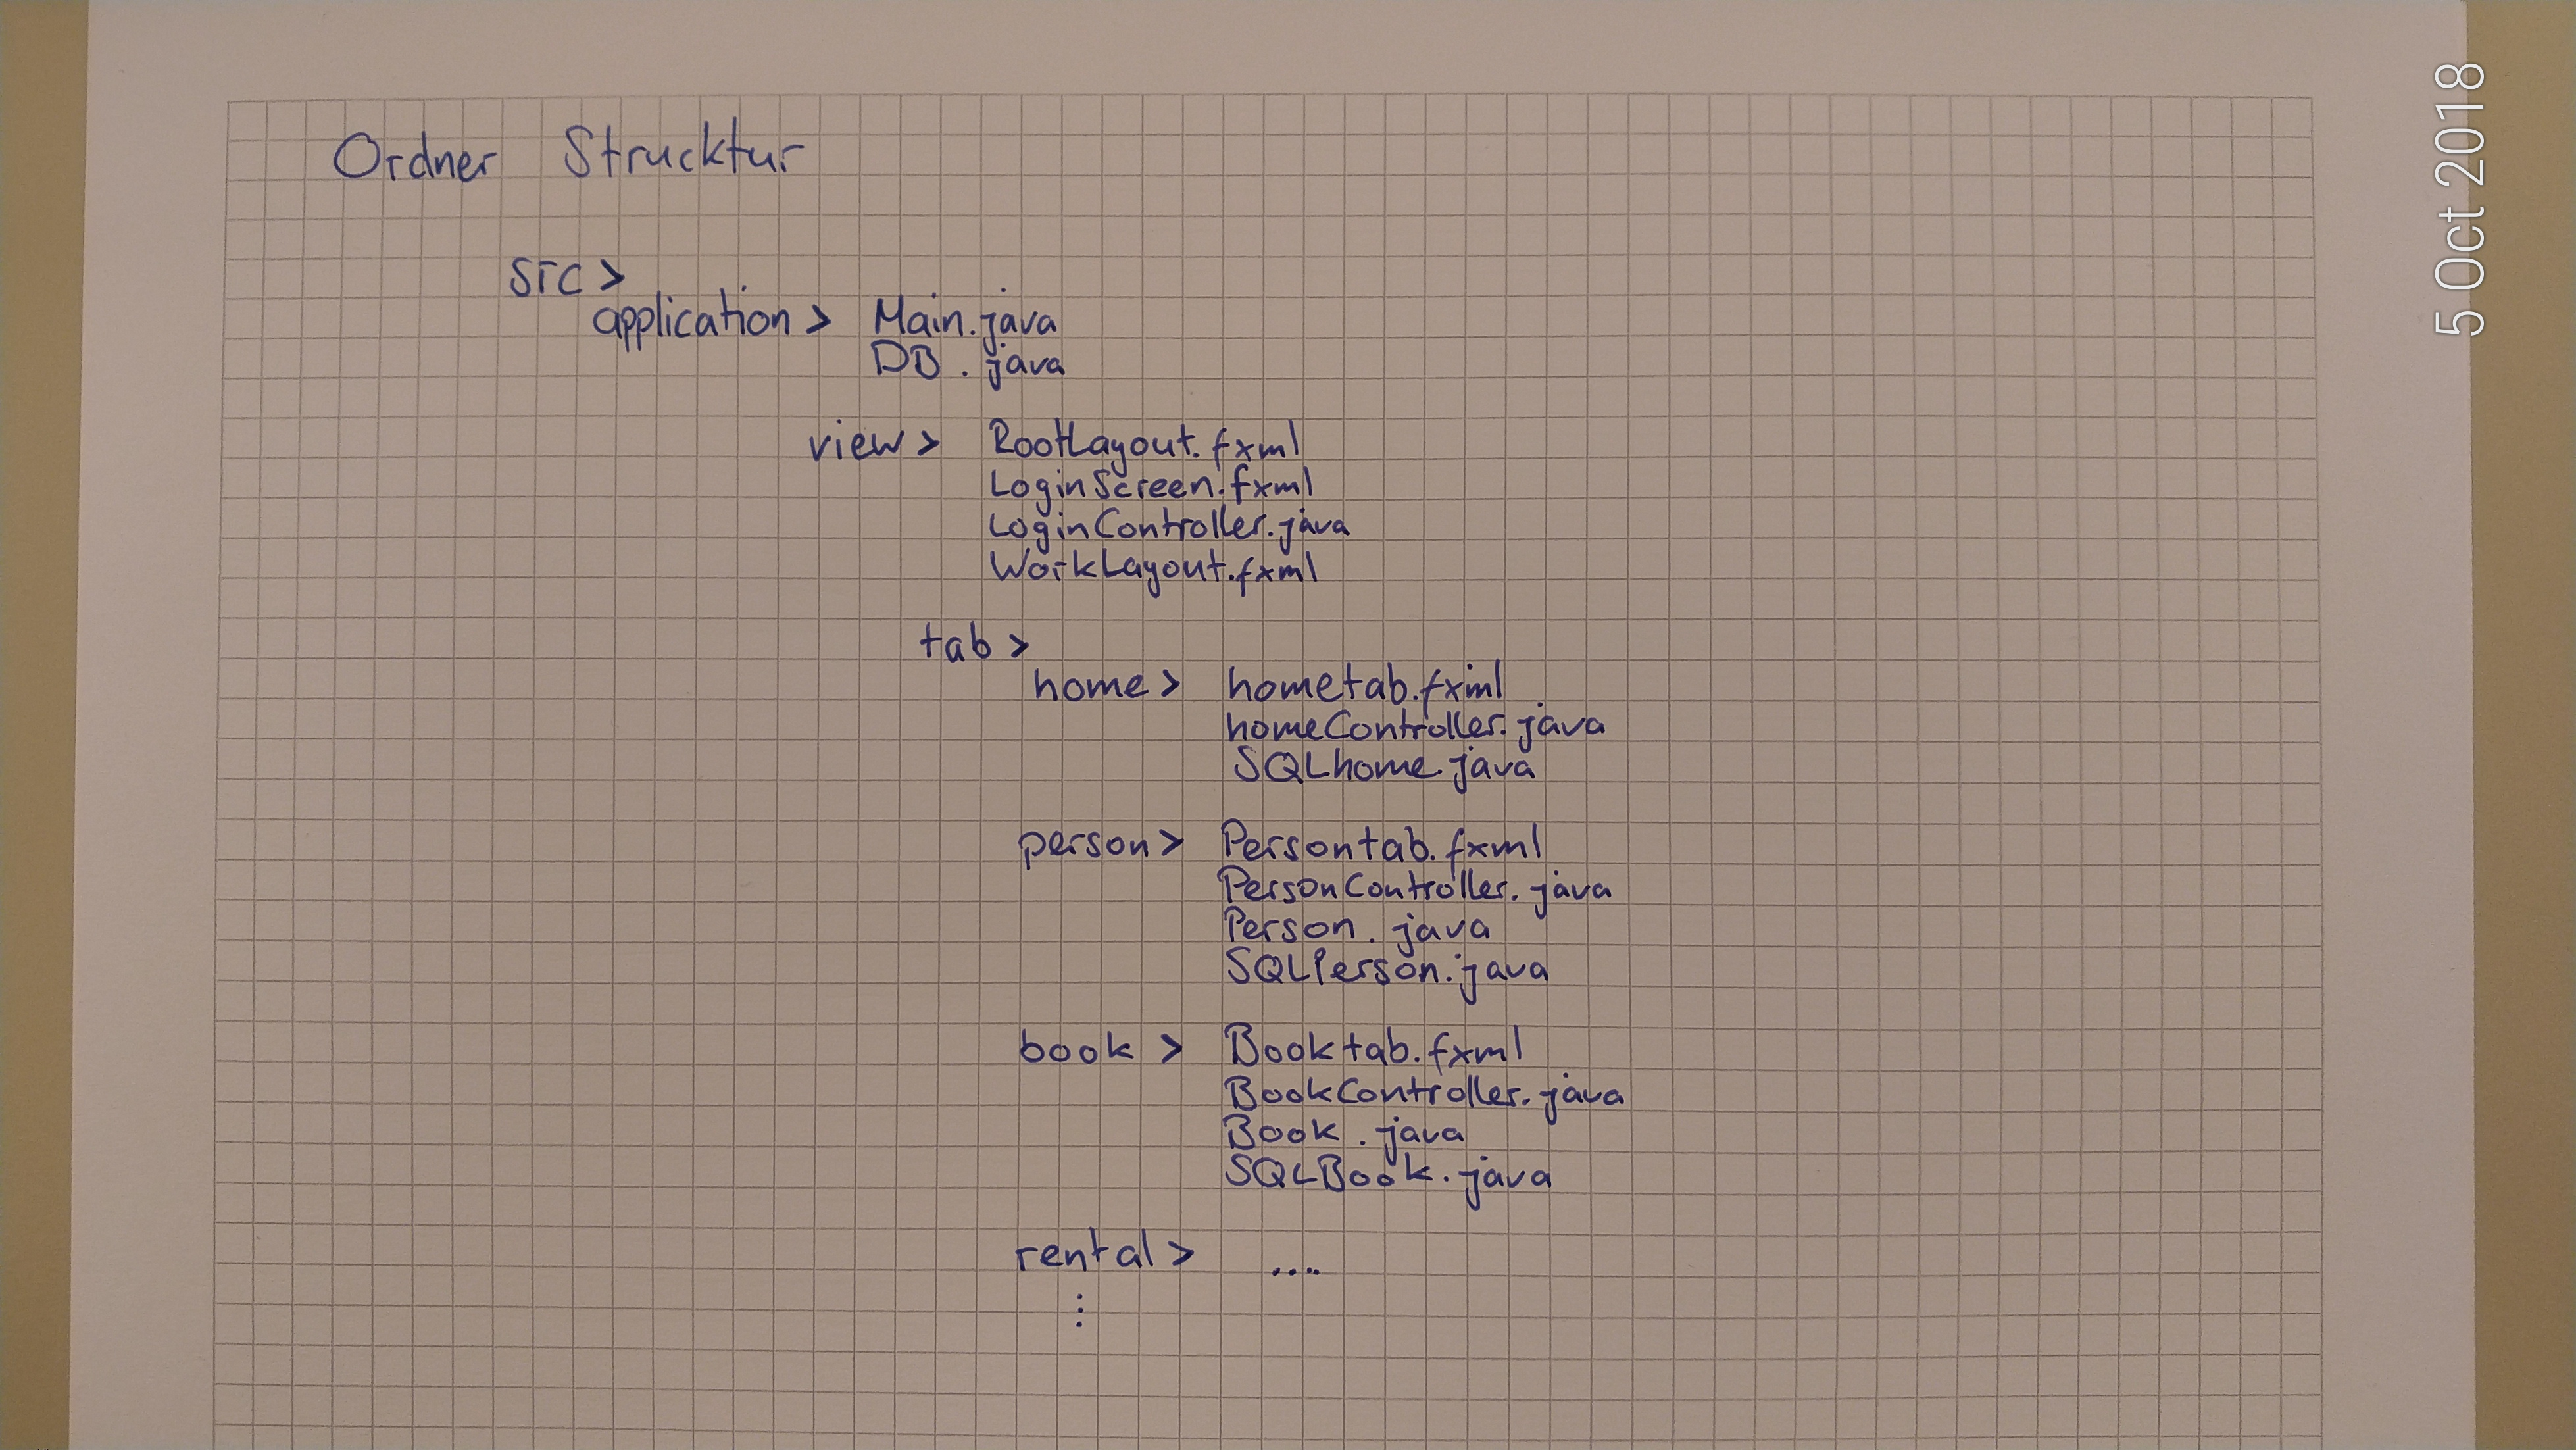 Ordner Strucktur
src >
application > Main.java
DB.java
view > RootLayout.fxml
LoginScreen.fxml
LoginController.java
WorkLayout.fxml
tab >
home > hometab.fxml
homeController.java
SQLhome.java
person > Persontab.fxml
PersonController.java
Person.java
SQLPerson.java
book > Booktab.fxml
BookController.java
Book.java
SQLBook.java
rental > ....
⋮
5 Oct 2018